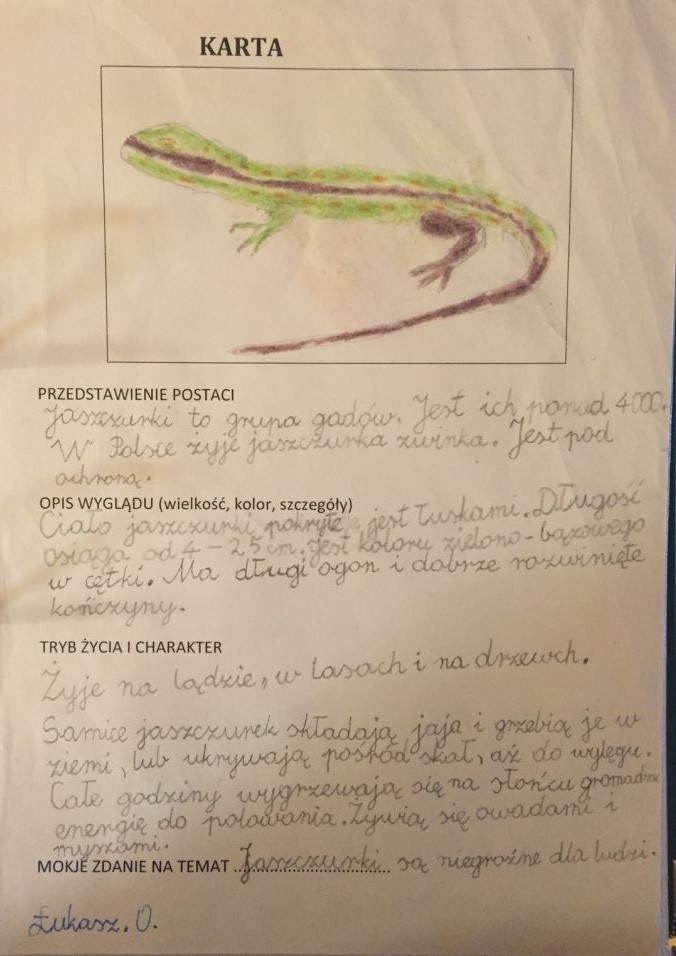 KARTA
PRZEDSTAWIENIE POSTACI
Jaszczurki to grupa gadów. Jest ich ponad 4000.
W Polsce żyje jaszczurka zwinka. Jest pod
ochroną.
OPIS WYGLĄDU (wielkość, kolor, szczegóły)
Ciało jaszczurki pokryte jest łuskami. Długość
osiąga od 4 – 25 cm. Jest koloru zielono-bązowego
w cętki. Ma długi ogon i dobrze rozwinięte
kończyny.
TRYB ŻYCIA I CHARAKTER
Żyje na lądzie, w lasach i na drzewch.
Samice jaszczurek składają jaja i grzebią je w
ziemi, lub ukrywają pośród skał, aż do wylęgu.
Całe godziny wygrzewają się na słońcu gromadząc
energię do polowania. Żywią się owadami i
myszami.
MOKJE ZDANIE NA TEMAT Jaszczurki są niegroźne dla ludzi.
Łukasz. O.